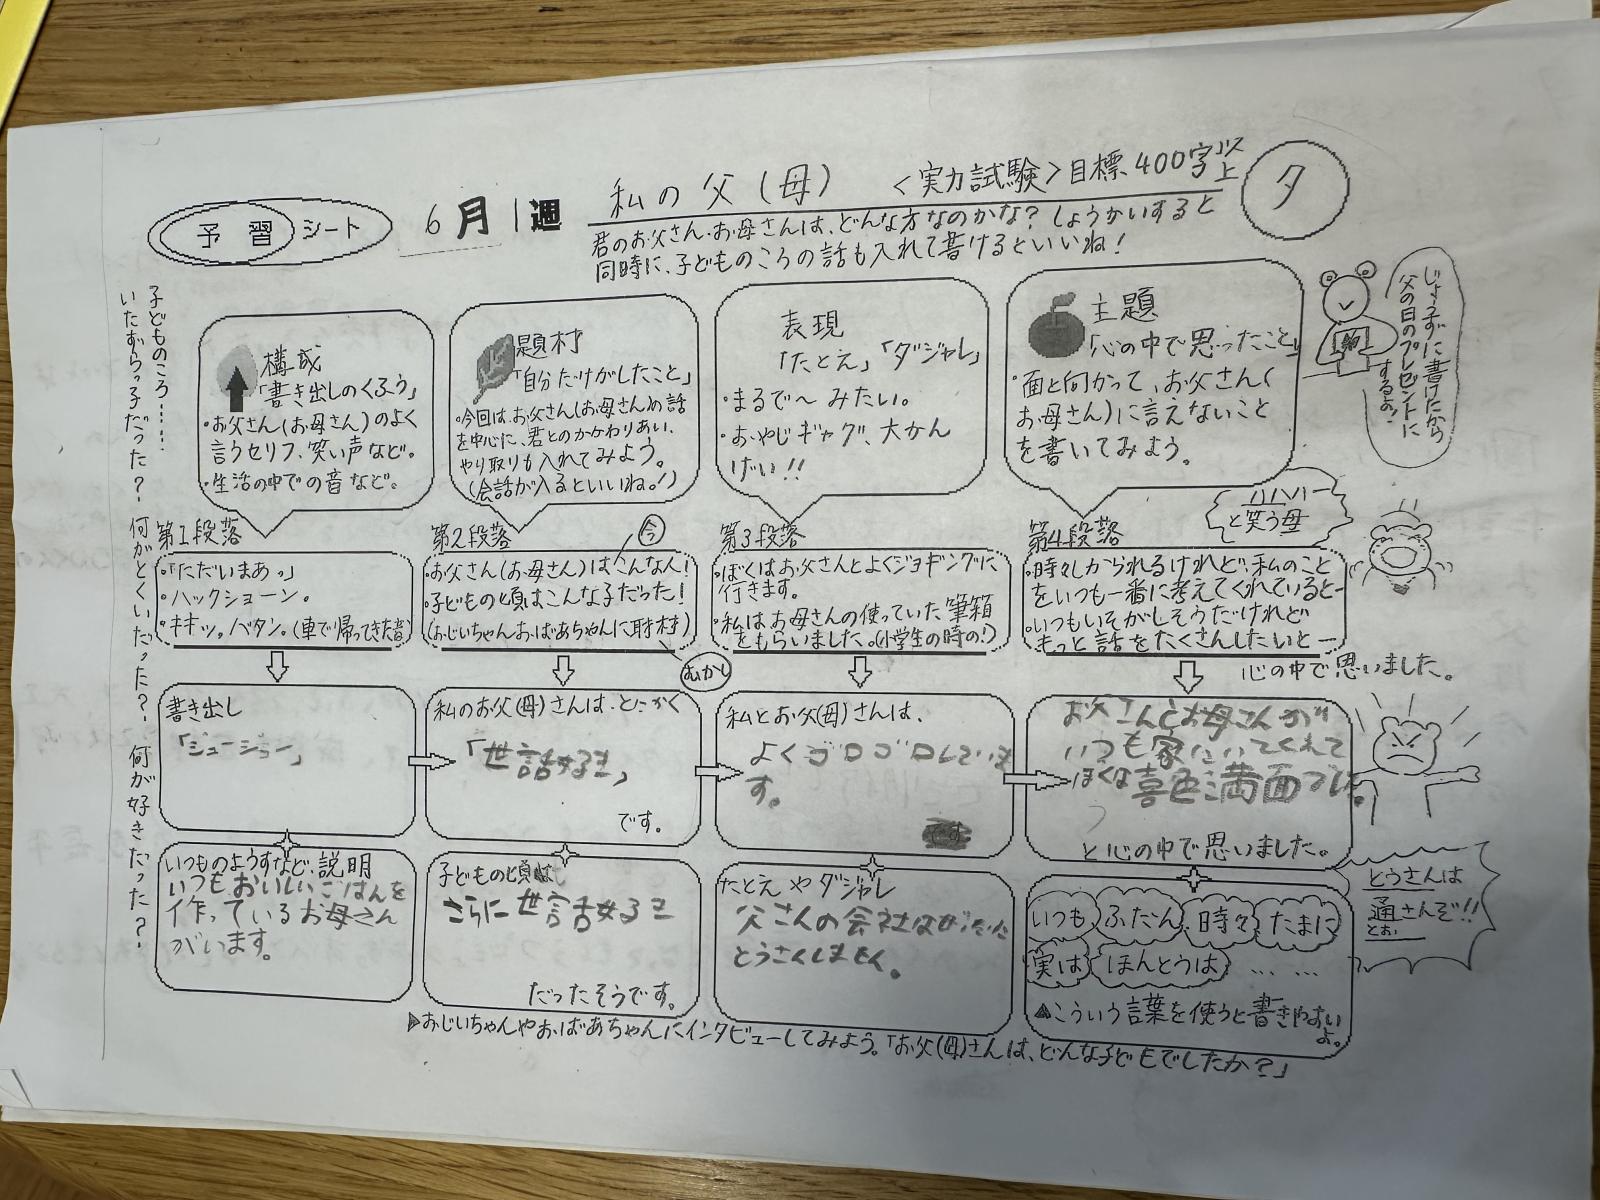 予習シート
6月1週
私の父(母)
<実力試験>目標400字以上
夕
君のお父さん・お母さんは、どんな方なのかな?しょうかいすると
同時に、子どものころの話も入れて書けるといいね!
じょうずに書けたから
父の日のプレゼントに
するよ!
子どものころ……
いたずらっ子だった?
何がとくいだった?
何が好きだった?
構成
「書き出しのくふう」
・お父さん(お母さん)のよく
言うセリフ、笑い声など。
・生活の中での音など。
題材
「自分だけがしたこと」
・今回はお父さん(お母さん)の話
を中心に、君とのかかわりあい、
やり取りも入れてみよう。
(会話が入るといいね!)
表現
「たとえ」「ダジャレ」
・まるで〜みたい。
・おやじギャグ、大かん
げい!!
主題
「心の中で思ったこと」
・面と向かって、お父さん(
お母さん)に言えないこと
を書いてみよう。
第1段落
・「ただいまあっ」
・ハックショーン。
・キキッ。バタン。(車で帰ってきた音)
第2段落
今
・お父さん(お母さん)はこんな人!
・子どもの頃はこんな子だった!
(おじいちゃんおばあちゃんに取材)
むかし
第3段落
・ぼくはお父さんとよくジョギングに
行きます。
・私はお母さんの使っていた筆箱
をもらいました。(小学生の時の!)
第4段落
・時々しかられるけれど、私のこと
をいつも一番に考えてくれていると―
・いつもいそがしそうだけれど
もっと話をたくさんしたいと―
心の中で思いました。
ハハハー
と笑う母
書き出し
「ジュージュー」
私のお父(母)さんは、とにかく
「世話好き」
です。
私とお父(母)さんは、
よくゴロゴロしていま
す。
お父さんとお母さんが
いつも家にいてくれて
ぼくは喜色満面でした。
と心の中で思いました。
いつものようすなど、説明
いつもおいしいごはんを
作っているお母さん
がいます。
子どもの頃は
さらに世話好き
だったそうです。
たとえやダジャレ
父さんの会社はぜったい
とうさんしません。
いつも ふだん 時々 たまに
実は ほんとうは ……
▲こういう言葉を使うと書きやすい
よ。
とうさんは
通さんぞ!!
とお
▶おじいちゃんやおばあちゃんにインタビューしてみよう。「お父(母)さんは、どんな子どもでしたか?」